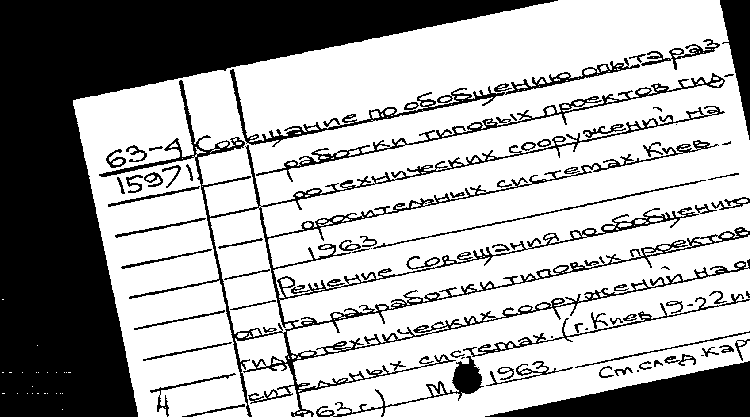 63-4 Совещание по обобщению опыта раз-
15971 работки типовых проектов гид-
ротехнических сооружений на
оросительных системах. Киев
1963.
Решение Совещания по обобщению
опыта разработки типовых проектов
гидротехнических сооружений на о
сительных системах. (г. Киев 19-22 и
963 г.) М., 1963.
См. след карт
4